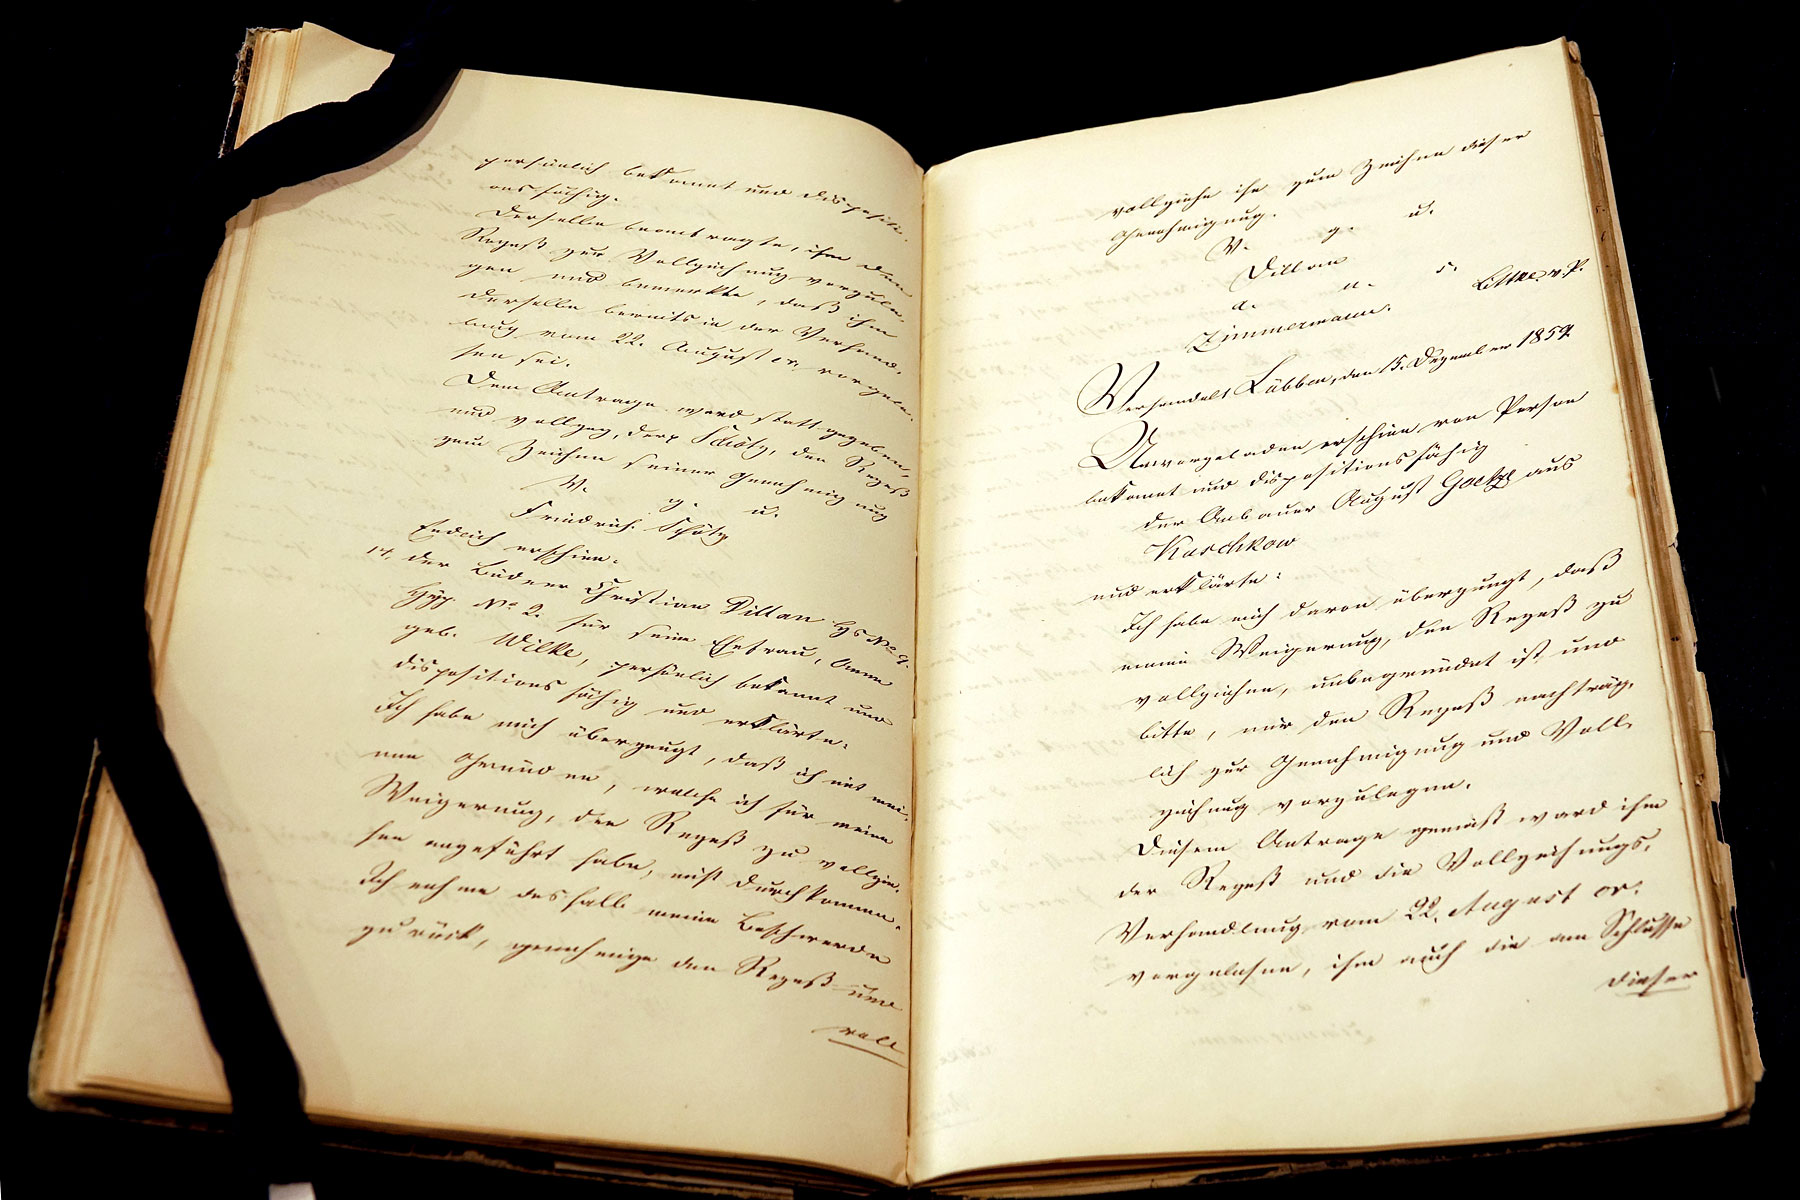 persönlich bekannt und dispositi-
ons fähig.
Derselbe beantragte, ihm den
Rezeß zur Vollziehung vorzule-
gen und bemerkte, daß ihm
derselbe bereits in der Verhand-
lung vom 22. August cr. vorgele-
sen sei.
Dem Antrage ward stattgegeben,
und vollzog, der Schötz, den Rezeß
zum Zeichen seiner Genehmigung
V. g. u.
Friedrich Schötz
Endlich erschien.
14. der Büdner Christian Dillan Hs No 9.
Hyp No 2. für seine Ehefrau, Anne
geb. Wilke, persönlich bekannt und
dispositions fähig und erklärte:
Ich habe mich überzeugt, daß ich mit mei-
nen Gründen, welche ich für meine
Weigerung, den Rezeß zu vollzie-
hen angeführt habe, nicht durchkomme.
Ich nehme deshalb meine Beschwerde
zurück, genehmige den Rezeß und
voll
vollziehe ihn zum Zeichen dieser
Genehmigung.
V. g. u.
Dillan
a. u. s.
Zimmermann. v. P.
Verhandelt Lübben, den 15. Dezember 1859
Unvorgeladen erschien von Person
bekannt und dispositionsfähig
der Anbauer August Goetze aus
Kaschkow
und erklärte:
Ich habe mich davon überzeugt, daß
meine Weigerung, den Rezeß zu
vollziehen, unbegründet ist und
bitte, mir den Rezeß nachträg-
lich zur Genehmigung und Voll-
ziehung vorzulegen.
Diesem Antrage gemäß ward ihm
der Rezeß und die Vollziehungs-
Verhandlung vom 22. August cr.
vorgelesen, ihm auch die am Schlusse
dieser